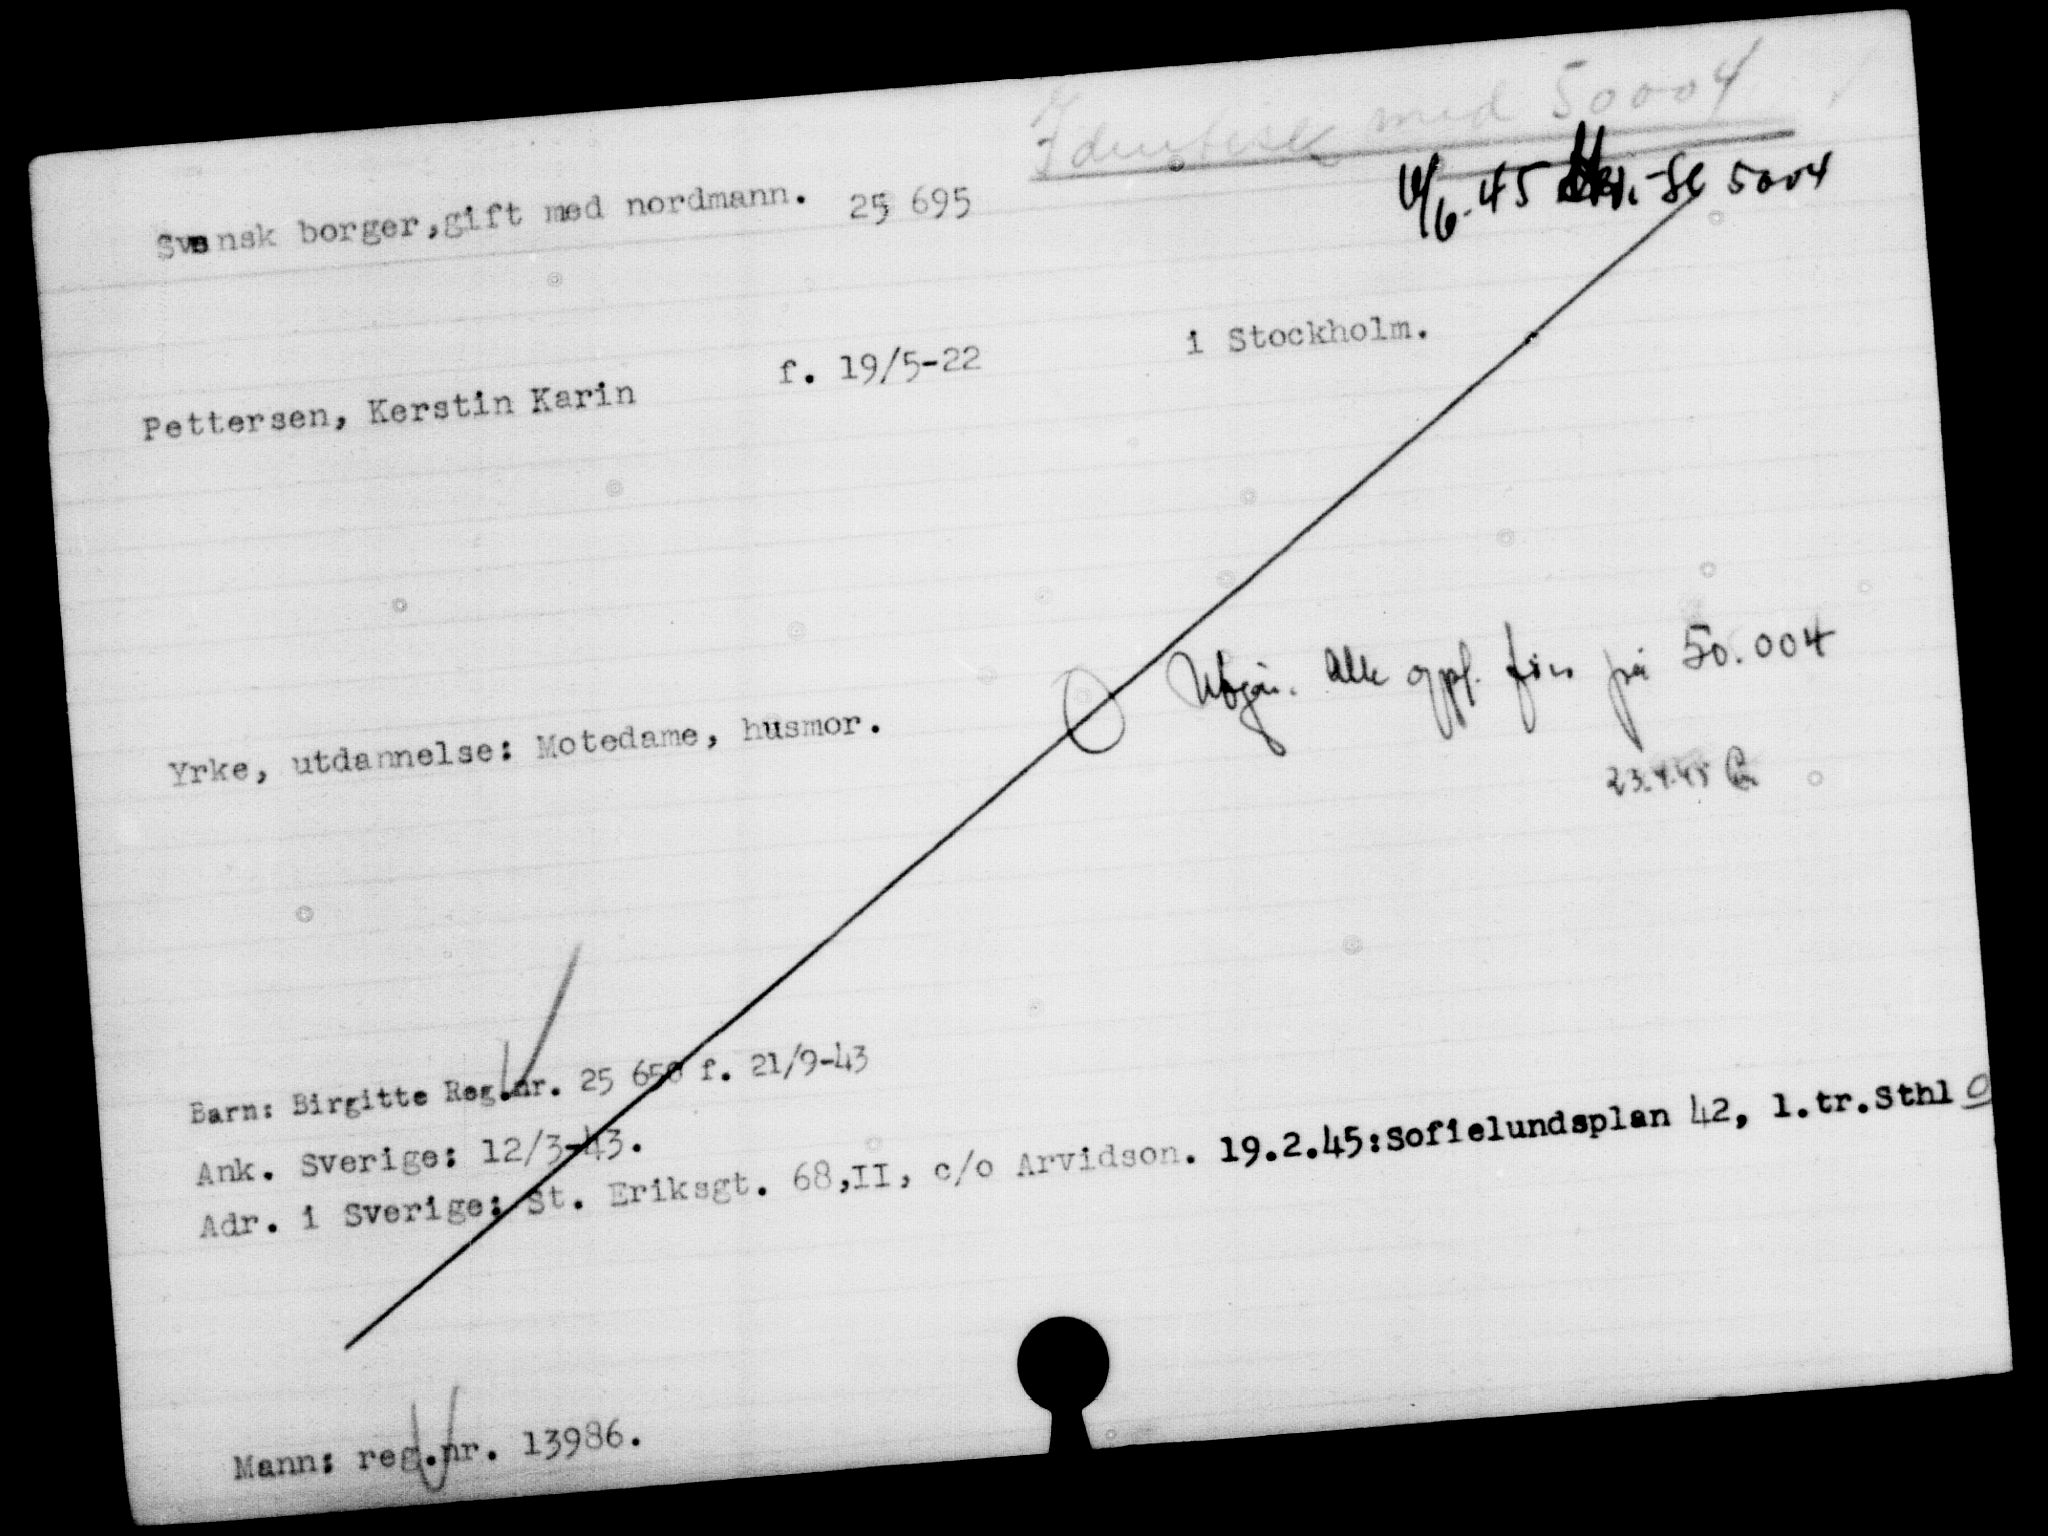 Identisk med 50004
Svensk borger, gift med nordmann. 25 695
6/6-45 Se 5004
Pettersen, Kerstin Karin f. 19/5-22 i Stockholm.
Utgår. Alle oppl. føres på 50.004
23.4.45
Yrke, utdannelse: Motedame, husmor.
Barn: Birgitte Reg.nr. 25 650 f. 21/9-43
Ank. Sverige: 12/3-43.
Adr. i Sverige: St. Eriksgt. 68,II, c/o Arvidson. 19.2.45:Sofielundsplan 42, 1.tr.Sthl
Mann: reg.nr. 13986.